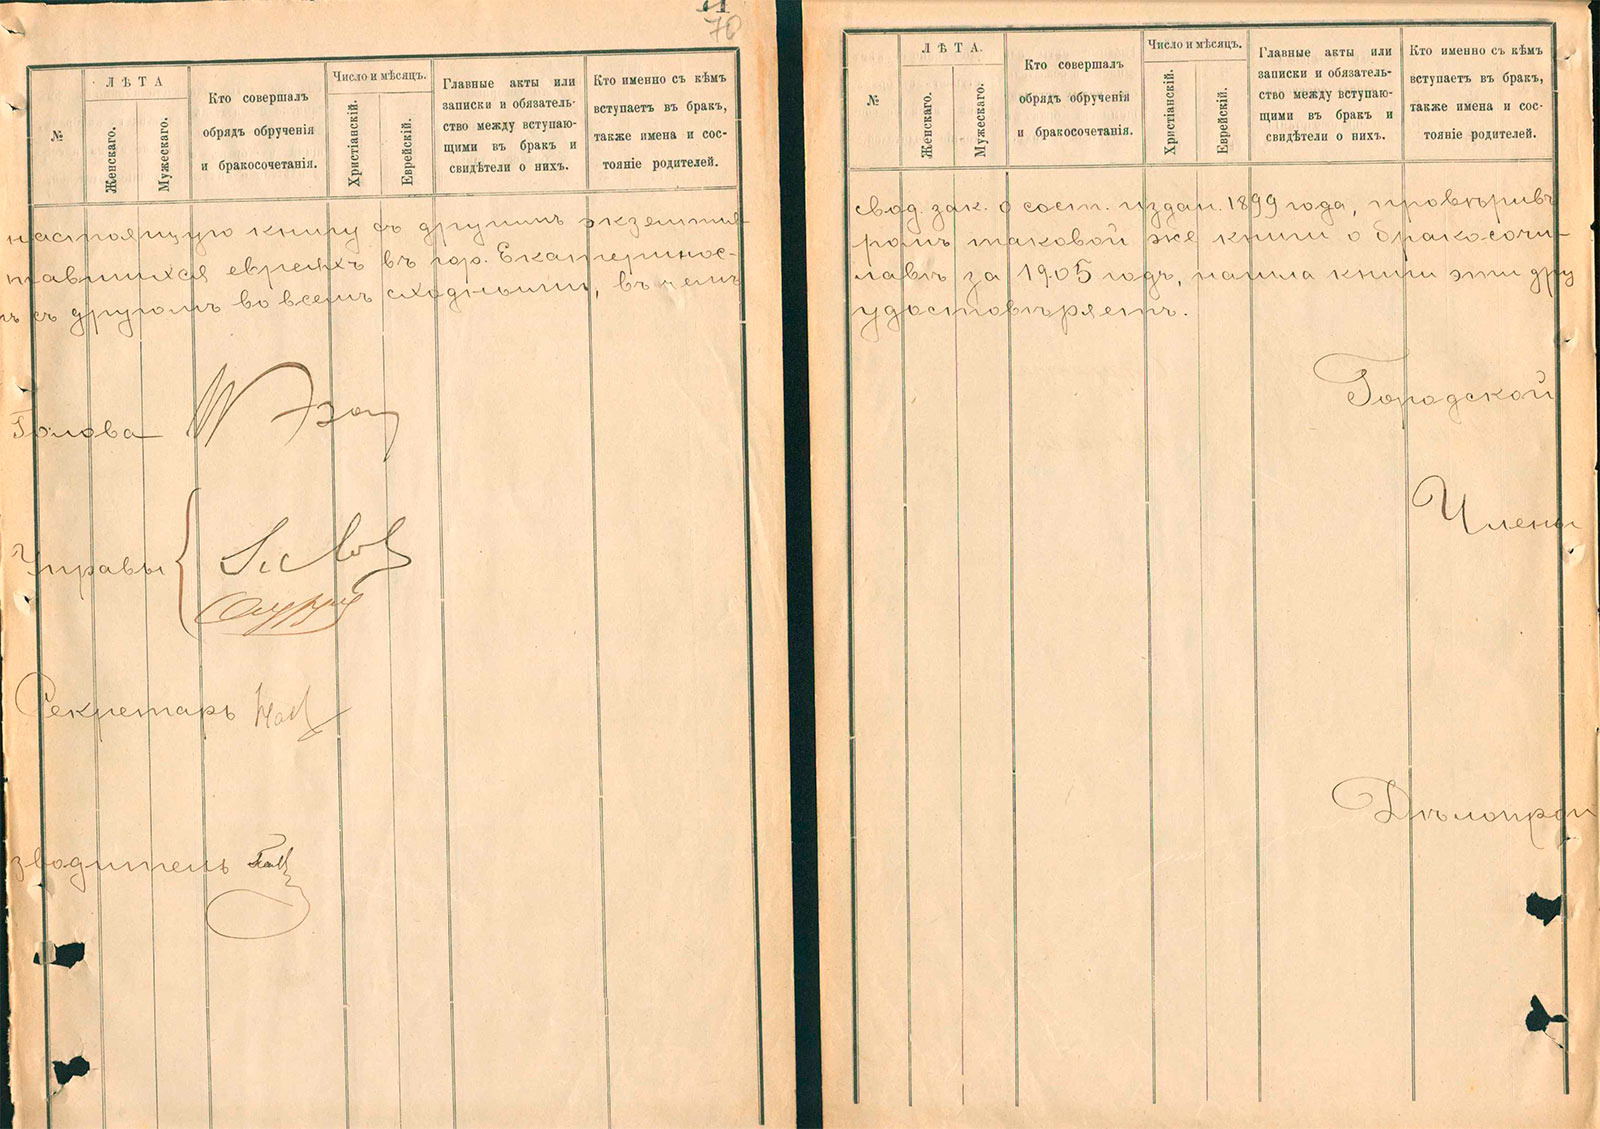 70
№
ЛѢТА
Женскаго.
Мужескаго.
Кто совершалъ
обрядъ обрученія
и бракосочетанія.
Число и мѣсяцъ.
Христіанскій.
Еврейскій.
Главные акты или
записки и обязатель-
ство между вступаю-
щими въ бракъ и
свидѣтели о нихъ.
Кто именно съ кѣмъ
вступаетъ въ бракъ,
также имена и сос-
тояніе родителей.
настоящую книгу съ другимъ экземпля-
тавшихся евреяхъ въ гор. Екатеринос-
съ другомъ во всемъ сходными, въ чемъ
Голова
Управы
Секретарь
зводитель
№
ЛѢТА.
Женскаго.
Мужескаго.
Кто совершалъ
обрядъ обрученія
и бракосочетанія.
Число и мѣсяцъ.
Христіанскій.
Еврейскій.
Главные акты или
записки и обязатель-
ство между вступаю-
щими въ бракъ и
свидѣтели о нихъ.
Кто именно съ кѣмъ
вступаетъ въ бракъ,
также имена и сос-
тояніе родителей.
свод. зак. о сост. издан. 1899 года, провѣривъ
ромъ таковой же книги о бракосочи-
лавѣ за 1905 годъ, нашла книги эти дру
удостовѣряетъ.
Городской
Члены
Дѣлопрои